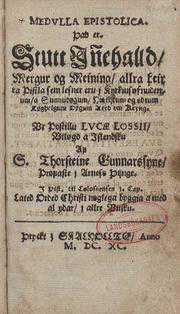 MEDVLLA EPISTOLICA.
Þad er.
Stutt Jñehalld/
Mergur og Meining/ allra þeir
ra Pistla sem lesner eru i Kyrkusøfnuden-
um/ a Sunnudøgum, og ødrum
Døgum Ared um Kring.
Vr Postillu LVCÆ LOSSII/
Vtløgd a Islendsku
Af
S. Thorsteine Gunnarssyne/
Profaste i Arness Þinge.
J Pist. til Colossensen 3. Cap.
Lated Orded Christi nøglega byggia a med
al ydar/ i allre Visku.
Þryckt j SKALHOLLTE/ Anno
M. DC. XC.